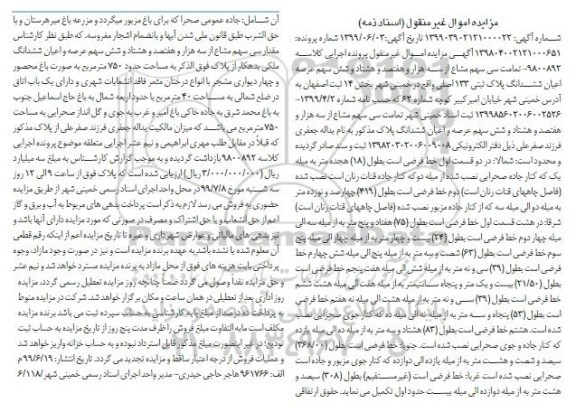 مزایده اموال غیر منقول (اسناد ذمه)
شماره آگهی: ۱۳۹۹۰۳۹۰۲۱۲۱۰۰۰۰۲۲ تاریخ آگهی: ۱۳۹۹/۰۶/۰۳ شماره پرونده:
۱۳۹۸۰۴۰۰۲۱۲۱۰۰۰۶۵۱ آگهی مزایده اموال غیر منقول پرونده اجرایی کلاسه
۹۸۰۰۸۹۲- تمامت سی سهم مشاع از سه هزار و هفتصد و هشتاد و شش سهم عرصه
و اعیان ششدانگ پلاک ثبتی ۱۳۳ اصلی واقع در خمینی شهر بخش ۱۴ ثبت اصفهان به
آدرس خمینی شهر خیابان امیرکبیر کوچه شماره ۶۲ که حسب نامه شماره ۱۳۹۹/۴/۲-
۱۳۹۹۸۵۶۰۲۰۰۶۰۰۲۵۲۶ ثبت اسناد خمینی شهر تمامت سی سهم مشاع از سه هزار و
هفتصد و هشتاد و شش سهم عرصه و اعیان ششدانگ پلاک مذکور به نام یداله جعفری
فرزند صفرعلی ذیل دفتر الکترونیکی ۱۳۹۸۲۰۳۰۲۰۰۶۰۰۹۰۰۸ ثبت و سند صادر گردیده
و محدود است: شمالا: در دو قسمت اول خط فرضی است بطول (۱۸) هجده متر به میله
یک که کنار جاده صحرایی نصب شده از میله دو که کنار جاده قنات زنان است نصب شده
(فاصل چاههای قنات زنان است) دوم خط فرضی است بطول (۴۱۹) چهارصد و نوزده متر
به میله دو الی میله سه که از کنار جاده مزبور نصب شده (فاصل چاههای قنات زنان است)
شرقا: در هشت قسمت اول خط فرضی است بطول (۷۵) هفتاد و پنج متر به از میله سه الی
میله چهار دوم خط فرضی است بطول (۲۴) بیست و چهار متر به از میله چهار الی میله پنج
سوم خط فرضی است بطول (۶۳) شصت و سه متر به از میله پنج الی میله شش چهارم خط
فرضی است بطول (۳۹) سی و نه متر به از میله شش الی میله هفت پنجم خط فرضی است
بطول (۲۱/۵۰) بیست و یک متر و پنجاه سانتیمتر به از میله هفت الی میله هشت ششم
خط فرضی است بطول (۳۹) سی و نه متر به از میله هشت الی میله نه هفتم خط فرضی
است بطول (۵۳) پنجاه و سه متر به از میله نه الی میله ده که کنار جوی صحرایی نصب
شده است. هشتم خط فرضی است بطول (۸۳) هشتاد و سه متر به از میله ده الی میله یازده
که کنار جاده و جوی صحرایی نصب شده است. جنوبا: خط فرضی است بطول (۳۶۸/۰۰)
سیصد و شصت و هشت متر به از میله یازده الی دوازده که کنار جوی مزبور و جاده است
صحرایی نصب شده است غربا: خط فرضی است (غیرمستقیم) بطول (۳۰۸) سیصد و
هشت متر به از میله دوازده الی میله بیست حدود اول تکمیل می نماید. حقوق ارتفاقی
آن شامل: جاده عمومی صحرا که برای باغ مزبور میگردد و مزرعه باغ میرهرستان و با
حق الشرب طبق قانون ملی شدن آبها و بانضمام اشجار مغروسه. که طبق نظر کارشناس
مقدار سی سهم مشاع از سه هزار و هفتصد و هشتاد و شش سهم عرصه و اعیان ششدانگ
ملکی بدهکار از پلاک فوق الذکر به مساحت حدود ۷۵۰ مترمربع به صورت باغ محصور
و چهار دیواری مشجر با انواع درختان مثمر فاقد انشعابات شهری و دارای یک باب اتاق
در ضلع شمالی به مساحت ۴۰ مترمربع با حدود اربعه شمال به باغ حاج اسماعیل جنوب
به باغ محمد شرق به جاده خاکی باغ امیر و غرب به جوی و گل انداز صحرایی به مساحت
۷۵۰ مترمربع می باشد که میزان مالکیت یداله جعفری فرزند صفرعلی از پلاک مذکور
که قبلاً در مقابل طلب مهری ابراهیمی و نیم عشر اجرایی متعلقه موضوع پرونده اجرایی
کلاسه ۹۸۰۰۸۹۲ بازداشت گردیده و به موجب گزارش کارشناس به مبلغ سه میلیارد
ریال (۳/۰۰۰/۰۰۰/۰۰۰ ریال) ارزیابی شده است که پلاک فوق از ساعت ۹ الی ۱۲ روز
سه شنبه مورخ ۹۹/۷/۸ در محل واحد اجرای اسناد رسمی خمینی شهر از طریق مزایده
حضوری به فروش می رسد لازم به ذکر است پرداخت بدهی های مربوط به آب و برق و گاز
اعم از حق انشعاب و یا حق اشتراک و مصرف در صورتی که مورد مزایده دارای آنها باشد و
نیز بدهی های مالیاتی و عوارض شهرداری و غیره تا تاریخ مزایده اعم از اینکه رقم قطعی
آن معلوم شده یا نشده باشد به عهده برنده مزایده است و نیز در صورت وجود مازاد، وجوه
پرداختی بابت هزینه های فوق از محل مازاد به برنده مزایده مسترد خواهد شد و نیم عشر
و حق مزایده نقداً وصول می گردد ضمناً چنانچه روز مزایده تعطیل رسمی گردد، مزایده
روز اداری بعد از تعطیلی در همان ساعت و مکان برگزار خواهد شد. شرکت در مزایده منوط
به پرداخت ده درصد از مبلغ پایه کارشناسی به حساب سپرده ثبت می باشد برنده مزایده
مکلف است مابه التفاوت مبلغ فروش را ظرف مدت پنج روز از تاریخ مزایده به حساب ثبت
تودیع؛ در غیر اینصورت مبلغ مذکور قابل استرداد نبوده و به حساب خزانه واریز خواهد شد
و عملیات فروش از درجه اعتبار ساقط و مزایده تجدید می گردد. تاریخ انتشار: ۹۹/۶/۱۹ م
الف: ۹۶۱۷۶۶ هاجر حاجی حیدری- مدیر واحد اجرای اسناد رسمی خمینی شهر ۶/۱۱۸